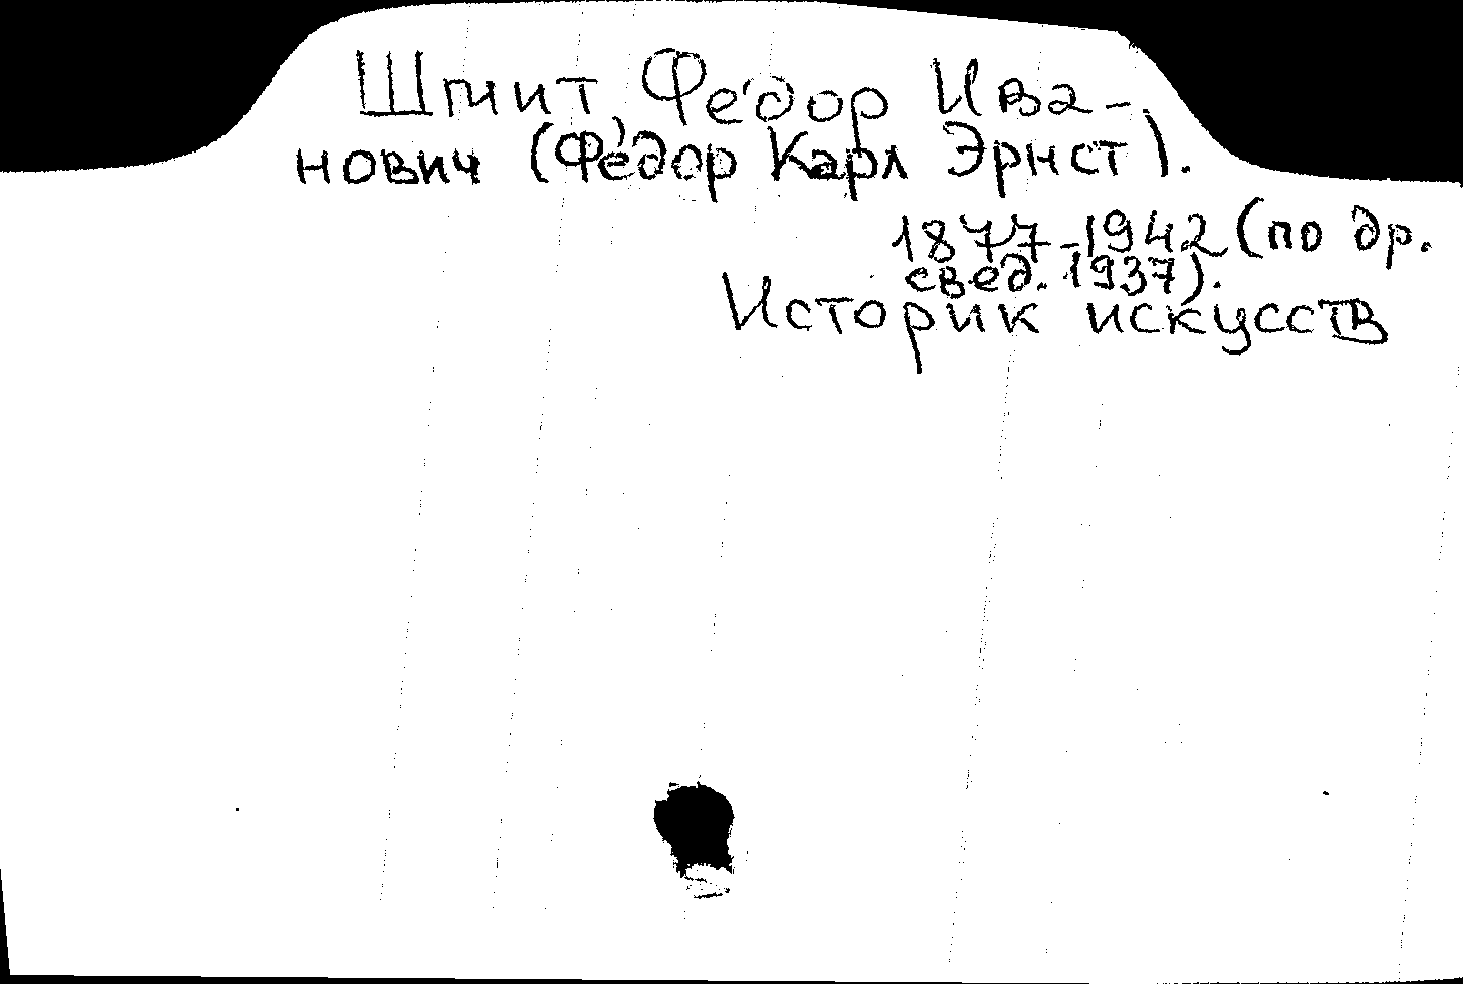 Шмит, Фёдор Ива-
нович (Фёдор Карл Эрнст).
1877-1942 (по др.
свед. 1937).
Историк искусств